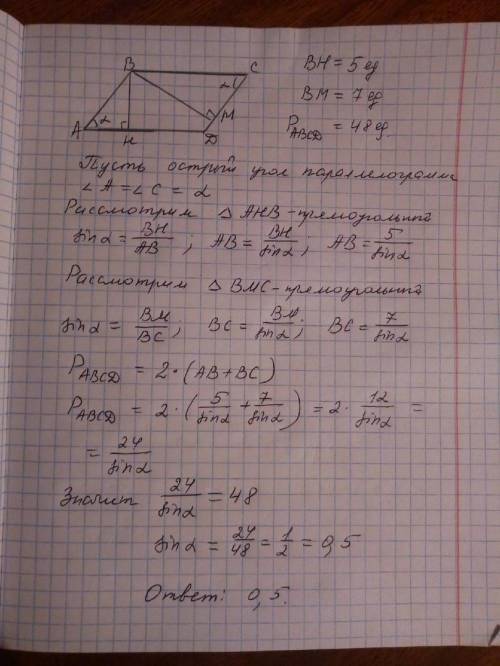 B C
α
A α H D M
BH = 5 ед
BM = 7 ед.
P_ABCD = 48 ед.
Пусть острый угол параллелограмма
∠A = ∠C = α
Рассмотрим △ AHB - прямоугольный
sinα = BH/AB ; AB = BH/sinα ; AB = 5/sinα
Рассмотрим △ BMC - прямоугольный
sinα = BM/BC ; BC = BM/sinα ; BC = 7/sinα
P_ABCD = 2·(AB+BC)
P_ABCD = 2·(5/sinα + 7/sinα) = 2· 12/sinα =
= 24/sinα
Значит 24/sinα = 48
sinα = 24/48 = 1/2 = 0,5
Ответ: 0,5.